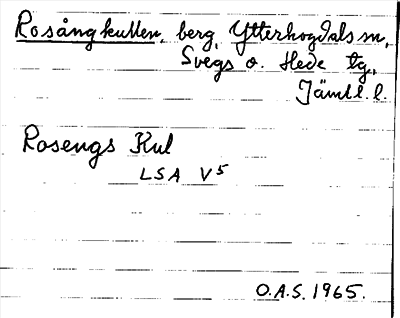 Rosångkullen, berg, Ytterhogdals sn,
Svegs o. Hede tg,
Jämtl. l.
Rosengs Kul
LSA V5
O.A.S. 1965.